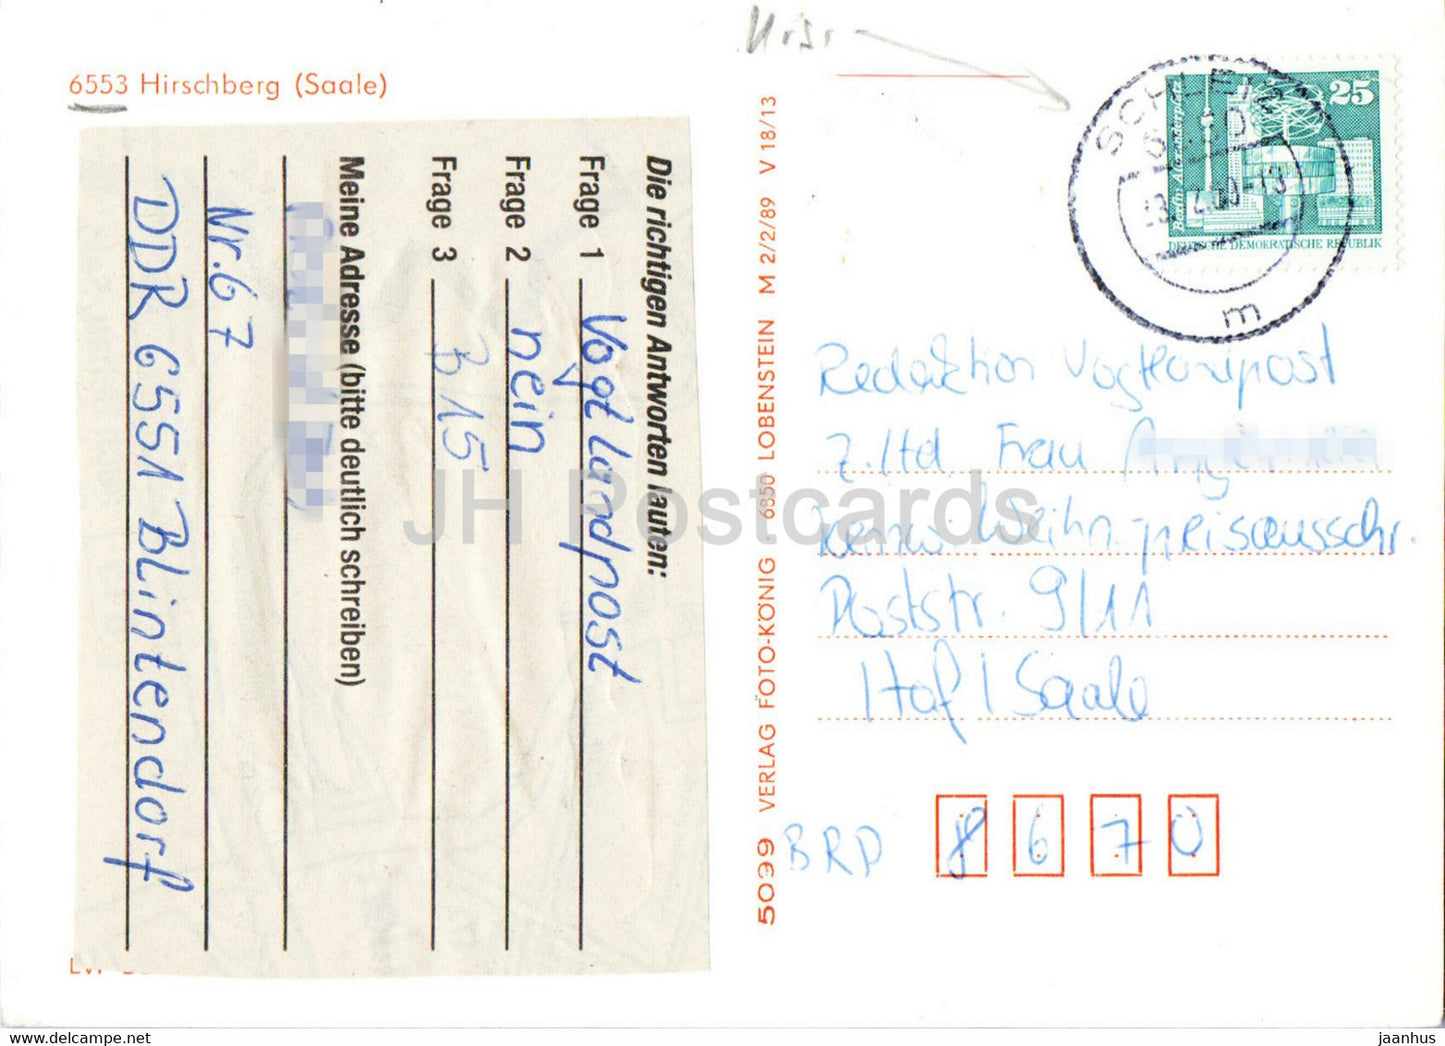 6553 Hirschberg (Saale)
Die richtigen Antworten lauten:
Frage 1 Vogtlandpost
Frage 2 nein
Frage 3 B 15
Meine Adresse (bitte deutlich schreiben)
Nr. 67
DDR 6551 Blintendorf
5099 VERLAG FOTO-KÖNIG · 6850 LOBENSTEIN M 2/2/89 V 18/13
25
Berlin, Alexanderplatz
DEUTSCHE DEMOKRATISCHE REPUBLIK
SCHLEIZ
m
Redaktion Vogtlandpost
z. Hd Frau
Kennw. Weihn.-preisausschr.
Poststr. 9/11
Hof / Saale
BRD 8670
JH Postcards
delcampe.net
jaanhus